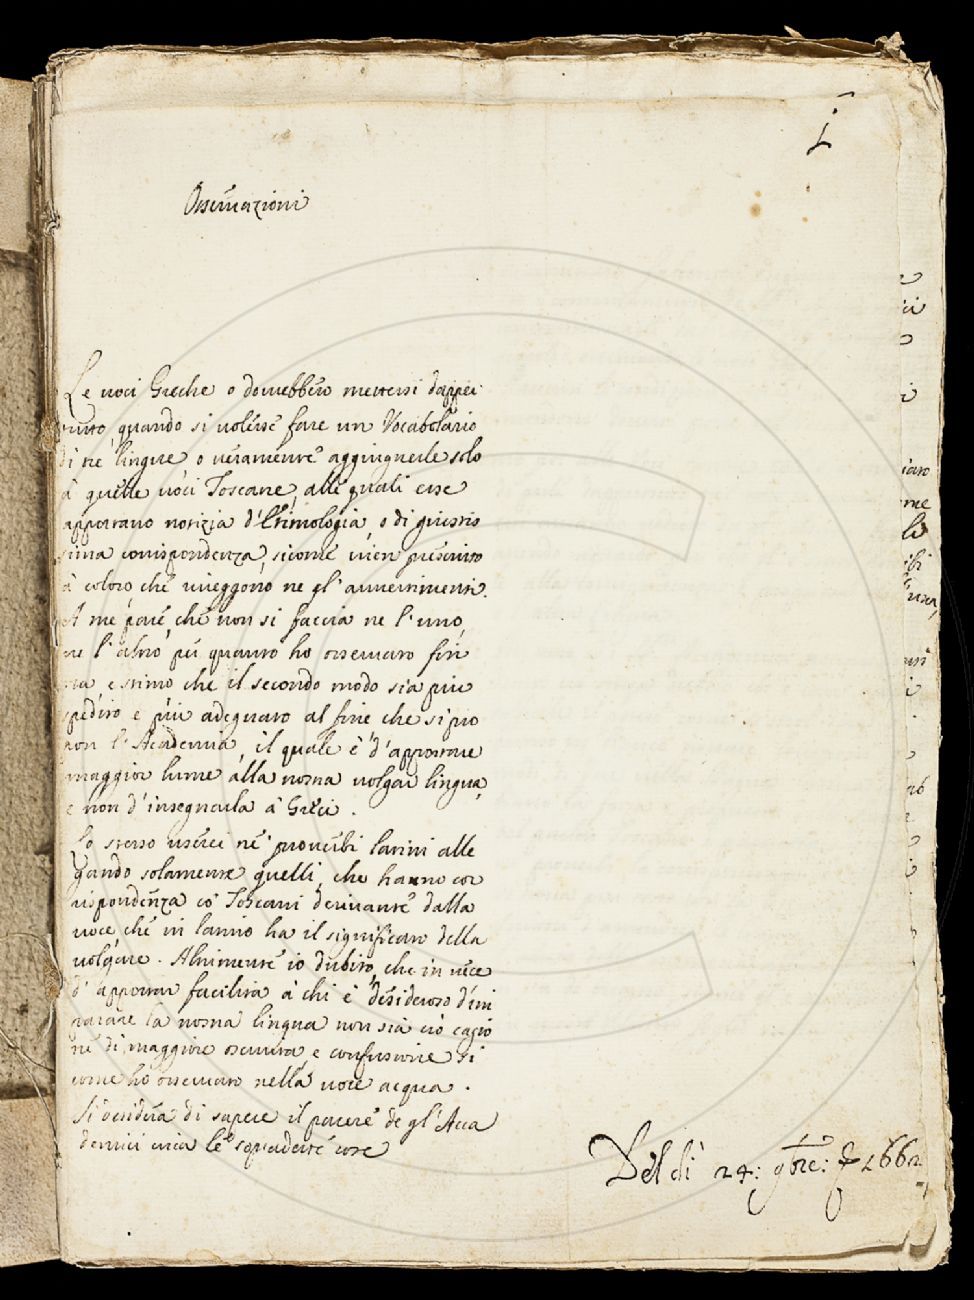 Osservazioni
Le voci Greche o dovrebbero mettersi dapper
tutto, quando si volesse fare un Vocabolario
di tre lingue, o veramente aggiugnerle solo
à quelle voci Toscane, alle quali esse
apportano notizia d'Etimologia, o di giustis
sima corrispondenza, sicome vien prescritto
à coloro che riveggono ne gl'avvertimenti.
A me pare, che non si faccia ne l'uno,
ne l'altro per quanto ho osservato fin
ora, e stimo che il secondo modo sia piu
spedito e piu adeguato al fine che si pro
pon l'Academia, il quale è d'apportare
maggior lume alla nostra volgar lingua,
e non d'insegnarla à Greci.
Lo stesso userei ne' proverbi latini alle
gando solamente quelli, che hanno cor
rispondenza co' Toscani derivante dalla
voce, che in latino ha il significato della
volgare. Altrimente io dubito, che in vece
d'apportar facilità à chi è desideroso d'im
parare la nostra lingua non sia ciò cagio
ne di maggiore oscurita, e confusione si
come ho osservato nella voce acqua.
Si desidera di sapere il parere de gl'Acca
demici circa le seguenti cose
Del di 24: 9bre: 1662